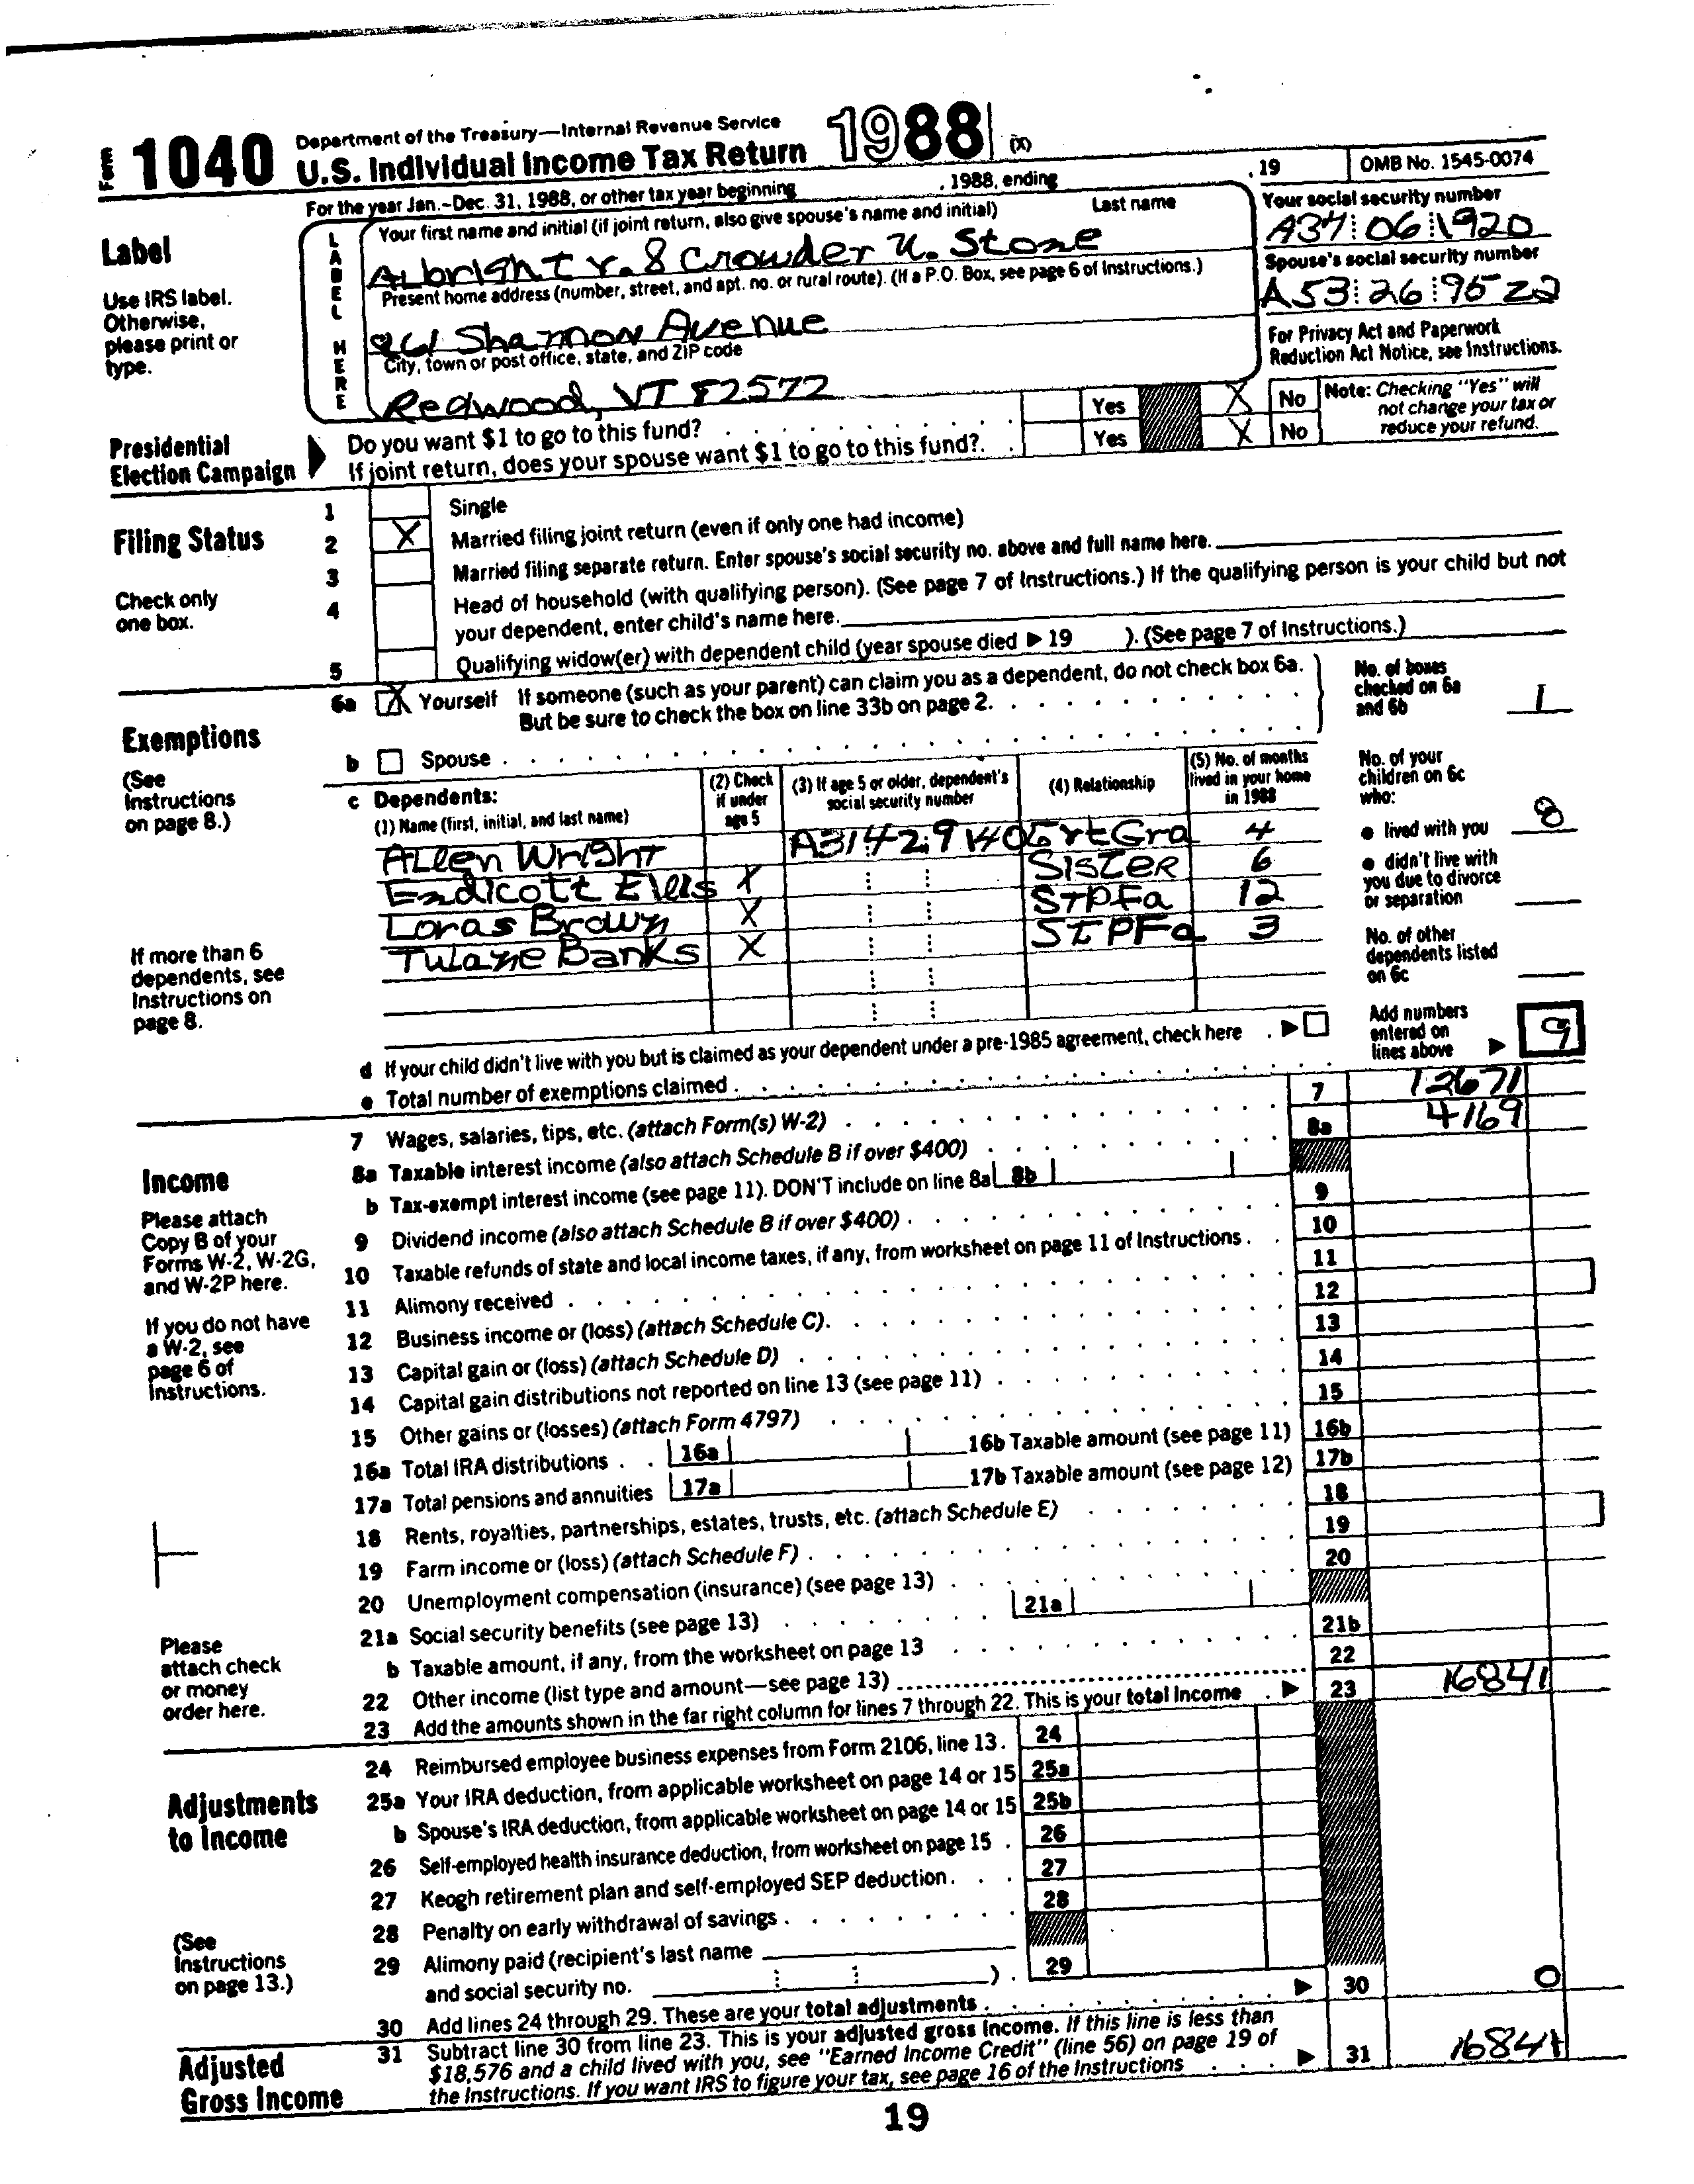 Form 1040 Department of the Treasury—Internal Revenue Service
U.S. Individual Income Tax Return 1988 (X)
For the year Jan.–Dec. 31, 1988, or other tax year beginning , 1988, ending , 19 OMB No. 1545-0074
Label
Use IRS label.
Otherwise,
please print or
type.
LABEL HERE
Your first name and initial (if joint return, also give spouse's name and initial) Last name
Albright r. & Crowder U. Stone
Present home address (number, street, and apt. no. or rural route). (If a P.O. Box, see page 6 of Instructions.)
Avenue
City, town or post office, state, and ZIP code
Redwood, VT 82572
Your social security number
A37 06 1920
Spouse's social security number
A53 26 9522
For Privacy Act and Paperwork
Reduction Act Notice, see Instructions.
Presidential
Election Campaign
Do you want $1 to go to this fund? Yes X No
If joint return, does your spouse want $1 to go to this fund? Yes X No
Note: Checking "Yes" will
not change your tax or
reduce your refund.
Filing Status
Check only
one box.
1 Single
2 X Married filing joint return (even if only one had income)
3 Married filing separate return. Enter spouse's social security no. above and full name here.
4 Head of household (with qualifying person). (See page 7 of Instructions.) If the qualifying person is your child but not
your dependent, enter child's name here.
5 Qualifying widow(er) with dependent child (year spouse died ▶ 19 ). (See page 7 of Instructions.)
Exemptions
(See
Instructions
on page 8.)
If more than 6
dependents, see
Instructions on
page 8.
6a X Yourself If someone (such as your parent) can claim you as a dependent, do not check box 6a.
But be sure to check the box on line 33b on page 2.
b Spouse
No. of boxes
checked on 6a
and 6b 1
c Dependents:
(1) Name (first, initial, and last name)
(2) Check
if under
age 5
(3) If age 5 or older, dependent's
social security number
(4) Relationship
(5) No. of months
lived in your home
in 1988
Allen Wright A31 42 9140 GrtGra 4
Endicott Ellis X Sister 6
Loras Brown X STPFa 12
Tulane Banks X STPFa 3
No. of your
children on 6c
who:
● lived with you 8
● didn't live with
you due to divorce
or separation
No. of other
dependents listed
on 6c
Add numbers
entered on
lines above ▶ 9
d If your child didn't live with you but is claimed as your dependent under a pre-1985 agreement, check here ▶
e Total number of exemptions claimed
Income
Please attach
Copy B of your
Forms W-2, W-2G,
and W-2P here.
If you do not have
a W-2, see
page 6 of
Instructions.
Please
attach check
or money
order here.
7 Wages, salaries, tips, etc. (attach Form(s) W-2) 7 12671
8a Taxable interest income (also attach Schedule B if over $400) 8a 4169
b Tax-exempt interest income (see page 11). DON'T include on line 8a 8b
9 Dividend income (also attach Schedule B if over $400) 9
10 Taxable refunds of state and local income taxes, if any, from worksheet on page 11 of Instructions 10
11 Alimony received 11
12 Business income or (loss) (attach Schedule C) 12
13 Capital gain or (loss) (attach Schedule D) 13
14 Capital gain distributions not reported on line 13 (see page 11) 14
15 Other gains or (losses) (attach Form 4797) 15
16a Total IRA distributions 16a 16b Taxable amount (see page 11) 16b
17a Total pensions and annuities 17a 17b Taxable amount (see page 12) 17b
18 Rents, royalties, partnerships, estates, trusts, etc. (attach Schedule E) 18
19 Farm income or (loss) (attach Schedule F) 19
20 Unemployment compensation (insurance) (see page 13) 20
21a Social security benefits (see page 13) 21a
b Taxable amount, if any, from the worksheet on page 13 21b
22 Other income (list type and amount—see page 13) 22
23 Add the amounts shown in the far right column for lines 7 through 22. This is your total income ▶ 23 16841
Adjustments
to Income
(See
Instructions
on page 13.)
24 Reimbursed employee business expenses from Form 2106, line 13. 24
25a Your IRA deduction, from applicable worksheet on page 14 or 15 25a
b Spouse's IRA deduction, from applicable worksheet on page 14 or 15 25b
26 Self-employed health insurance deduction, from worksheet on page 15 26
27 Keogh retirement plan and self-employed SEP deduction 27
28 Penalty on early withdrawal of savings 28
29 Alimony paid (recipient's last name
and social security no. ) 29
30 Add lines 24 through 29. These are your total adjustments ▶ 30 0
Adjusted
Gross Income
31 Subtract line 30 from line 23. This is your adjusted gross income. If this line is less than
$18,576 and a child lived with you, see "Earned Income Credit" (line 56) on page 19 of
the Instructions. If you want IRS to figure your tax, see page 16 of the Instructions ▶ 31 16841
19